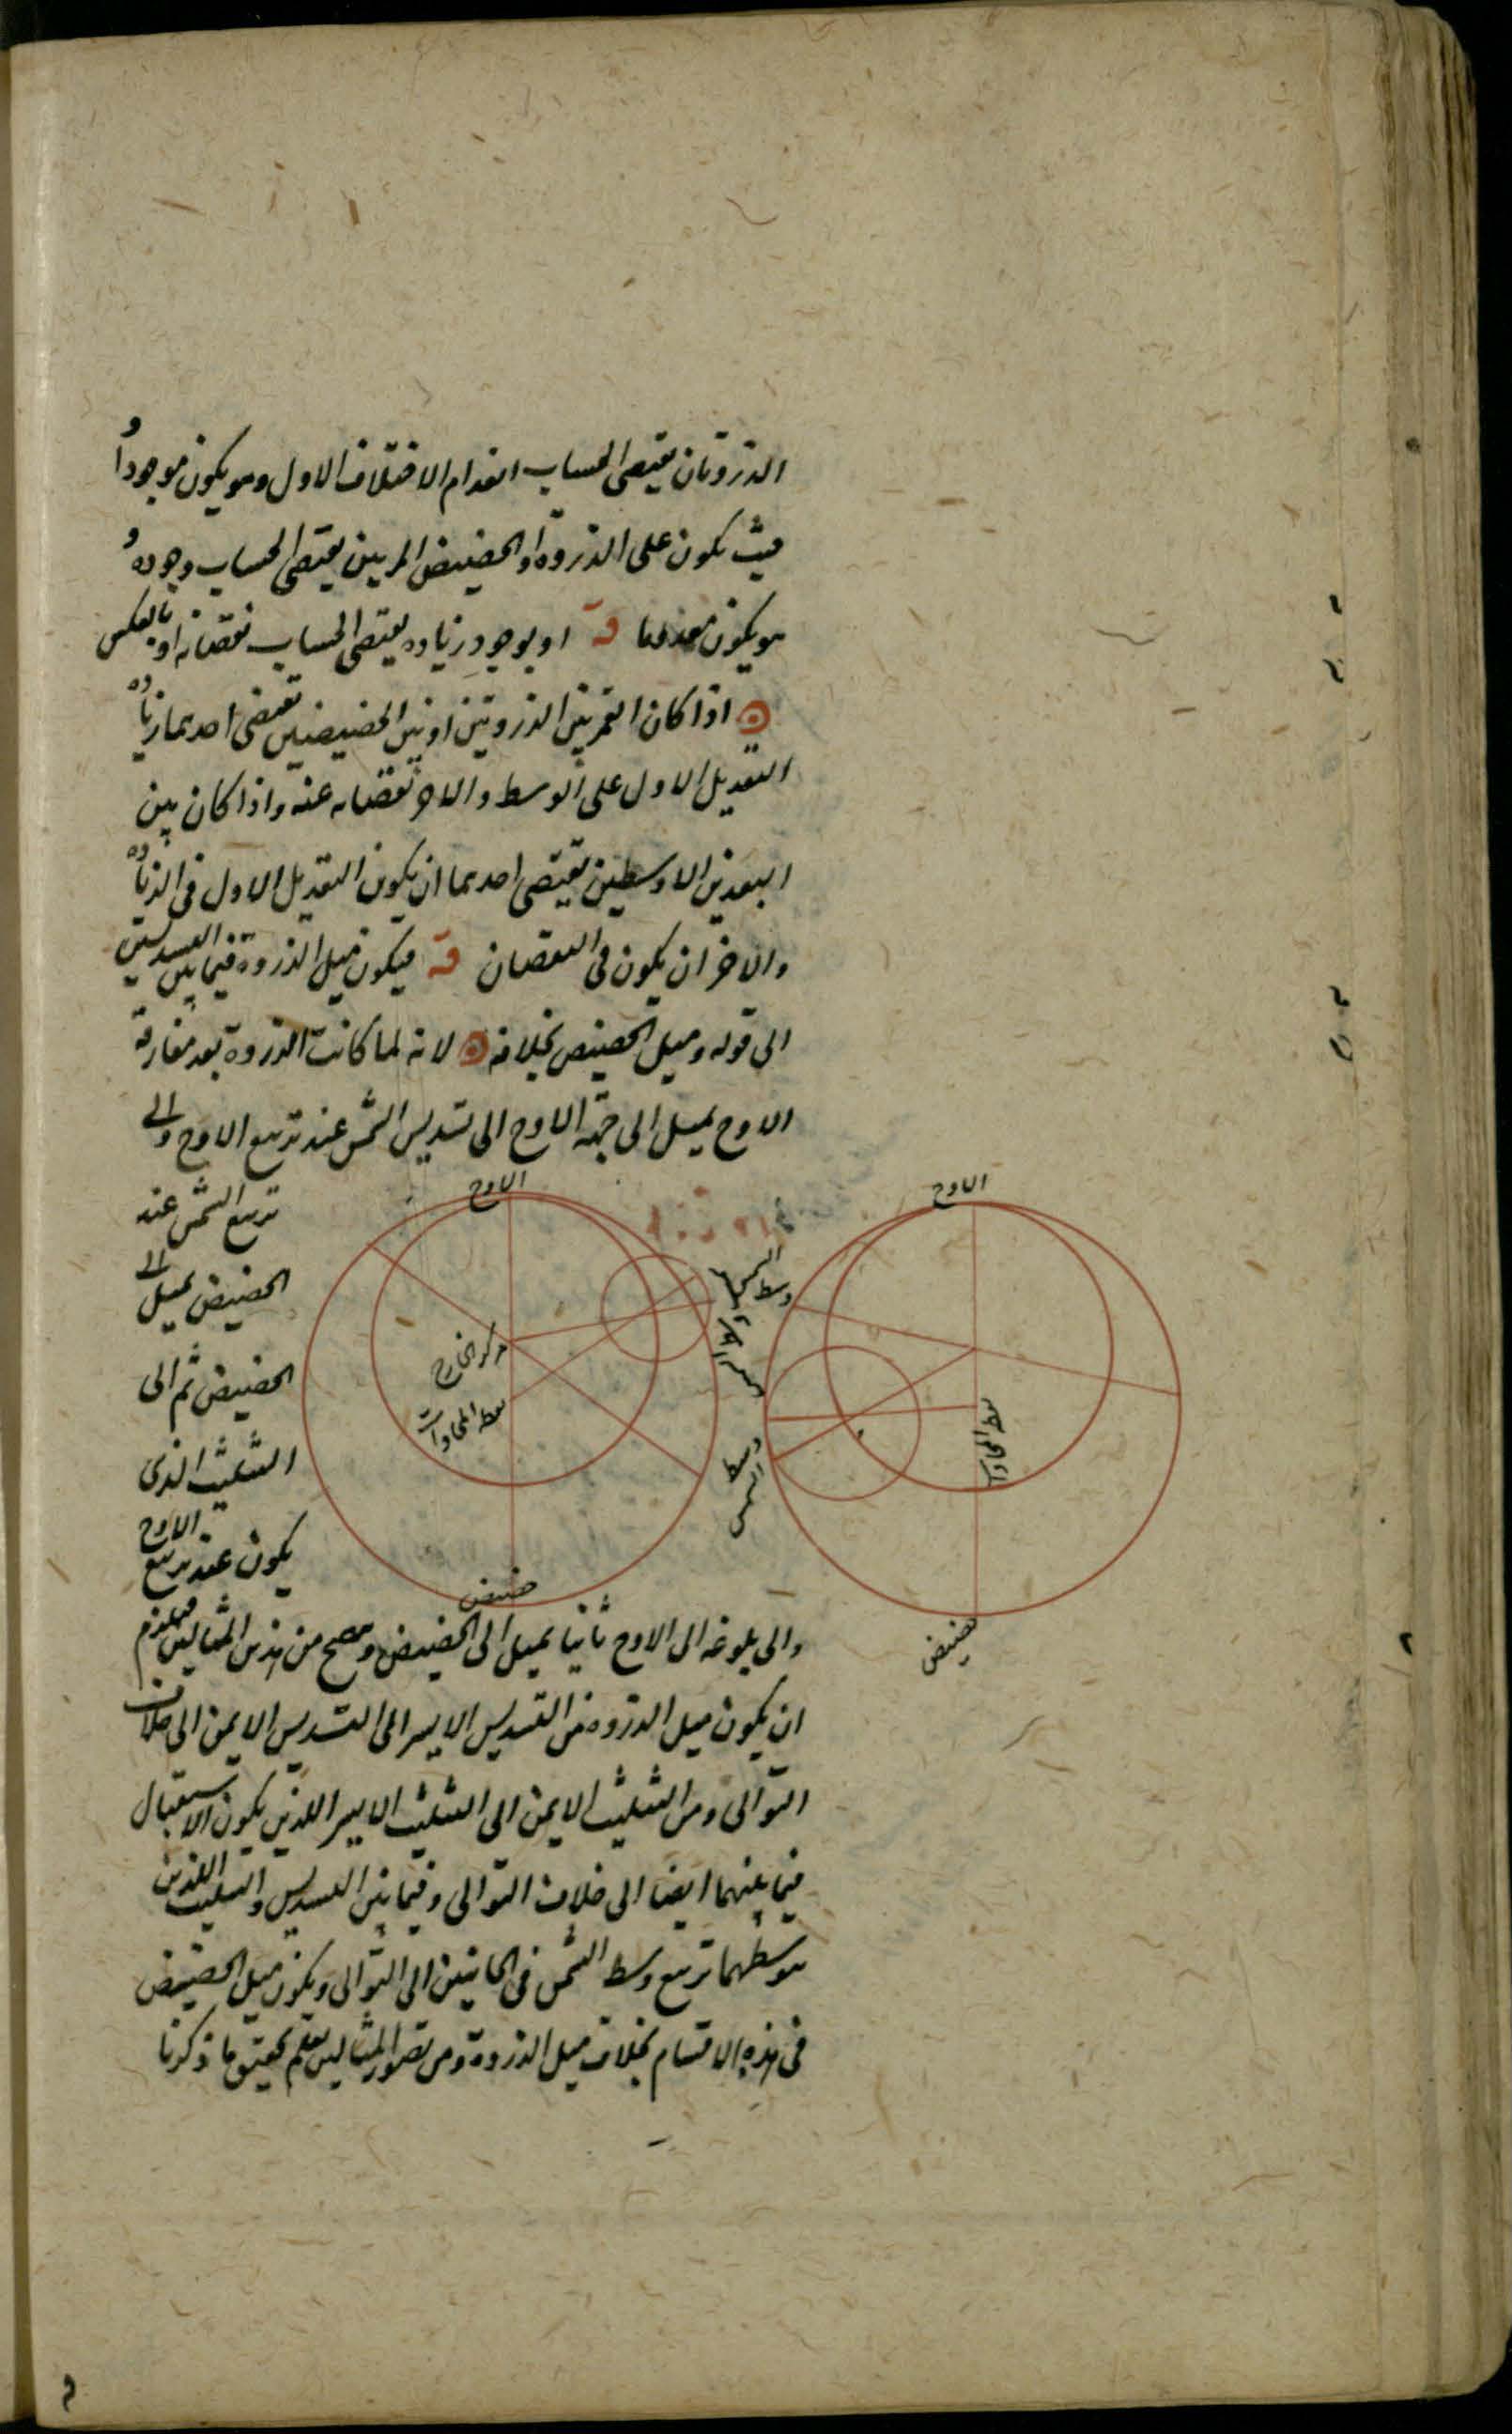 الذروتان يقتضى الحساب انعدام الاختلاف الاول وهو يكون موجودا و
حيث يكون على الذروة او الحضيض المرئيين يقتضى الحساب وجوده و
هو يكون معدوما قه او بوجود زيادة يقتضى الحساب نقصانه او بالعكس
اذا كان القمر بين الذروتين او بين الحضيضين يقتضى احدهما زيادة
التعديل الاول على الوسط والاخر نقصانه عنه واذا كان بين
البعدين الاوسطين يقتضى احدهما ان يكون التعديل الاول فى الزيادة
والاخر ان يكون فى النقصان قه فيكون ميل الذروة فيما بين التسديسين
الى قوله وميل الحضيض بخلافه لانه لما كانت الذروة بعد مفارقة
الاوج يميل الى جهة الاوج الى تسديس الشمس عند تربيع الاوج والى
تربيع الشمس عند
الحضيض يميل الى
الحضيض ثم الى
التثليث الذى
يكون عند تربيع الاوج
والى بلوغه الى الاوج ثانيا يميل الى الحضيض ويتضح من هذين المثالين فيلزم
ان يكون ميل الذروة من التسديس الايسر الى التسديس الايمن الى خلاف
التوالى ومن التثليث الايمن الى التثليث الايسر اللذين يكون الاستقبال
فيما بينهما ايضا الى خلاف التوالى وفيما بين التسديس والتثليث اللذين
يتوسطهما تربيع وسط الشمس فى الجانبين الى التوالى ويكون ميل الحضيض
فى هذه الاقسام بخلاف ميل الذروة ومن تصور المثالين يعلم تحقيق ما ذكرنا
الاوج
مركز الخارج
نقطة المحاذاة
حضيض
الاوج
وسط الشمس
وسط الشمس
نقطة المحاذاة
حضيض